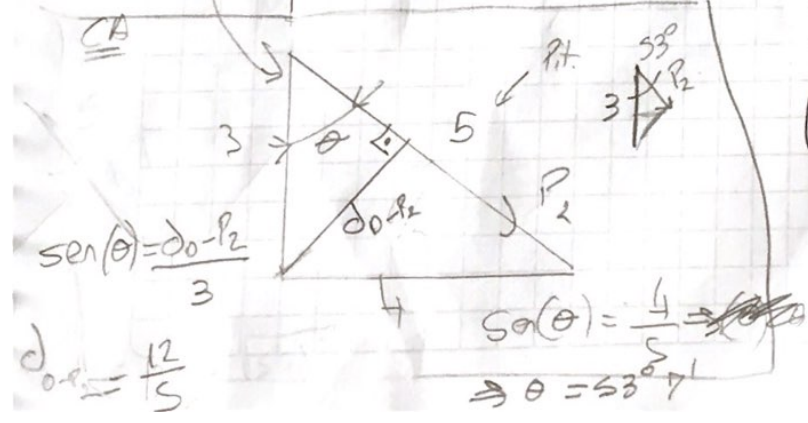 CA
Pit.
53°
P₂
3
3
θ
5
d₀₋P₂
P₂
sen(θ) = d₀₋P₂ / 3
4
sen(θ) = 4 / 5 ⇒
d₀₋P₂ = 12 / 5
⇒ θ = 53° 7'